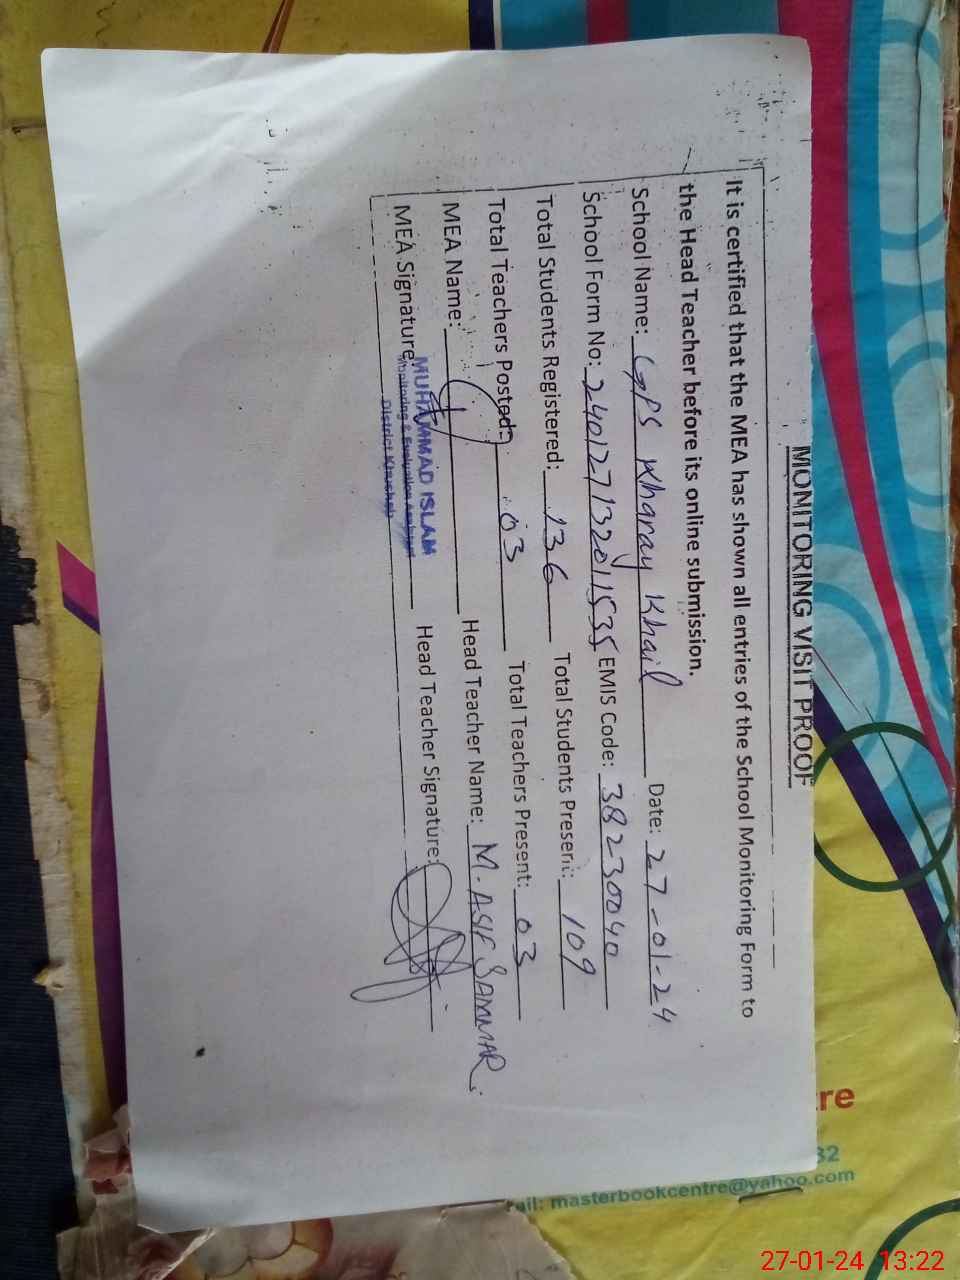 MONITORING VISIT PROOF
It is certified that the MEA has shown all entries of the School Monitoring Form to
the Head Teacher before its online submission.
School Name: GPS Kharay Khail Date: 27-01-24
School Form No: 240127132011535 EMIS Code: 38230040
Total Students Registered: 136 Total Students Present: 109
Total Teachers Posted: 03 Total Teachers Present: 03
MEA Name: Head Teacher Name: M. ASIF SAMMAR
MEA Signature: Head Teacher Signature:
MUHAMMAD ISLAM
Monitoring & Evaluation Assistant
District Khushab
re
32
ail: masterbookcentre@yahoo.com
27-01-24 13:22